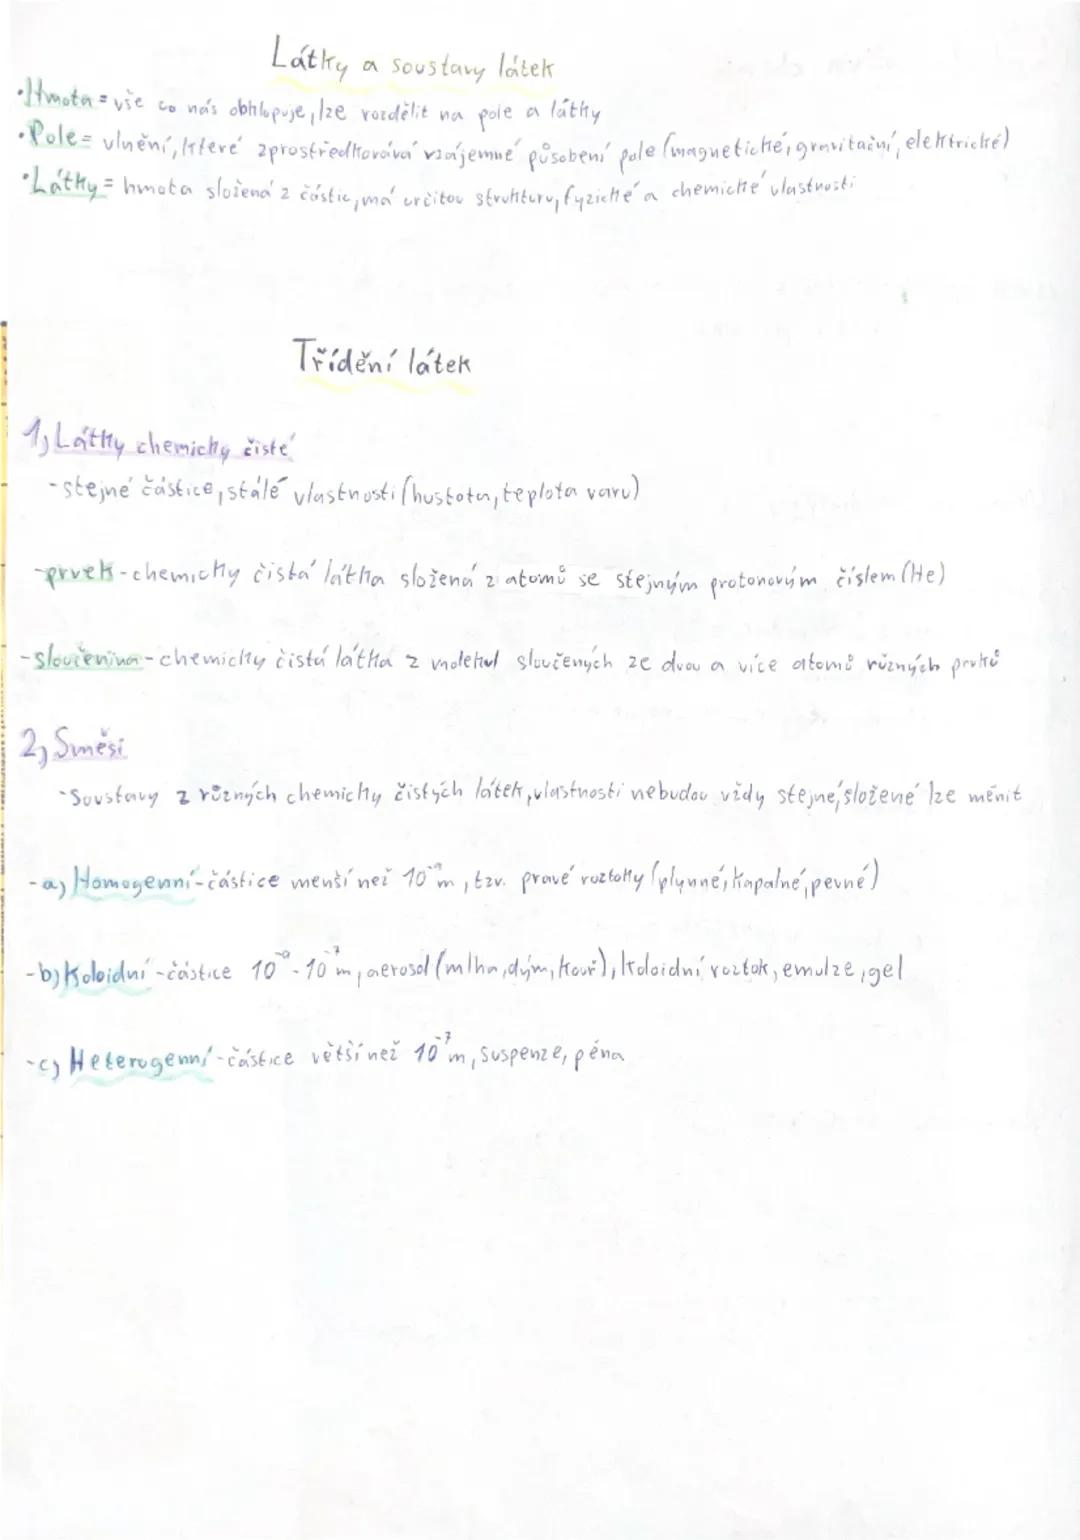 Látky a soustavy látek
•Hmota = vše co nás obklopuje, lze rozdělit na pole a látky
•Pole = vlnění, které zprostředkovává vzájemné působení pole (magnetické, gravitační, elektrické)
•Látky = hmota složená z částic, má určitou strukturu, fyzické a chemické vlastnosti
Třídění látek
1, Látky chemicky čisté
-stejné částice, stálé vlastnosti (hustota, teplota varu)
-prvek - chemicky čistá látka složená z atomů se stejným protonovým číslem (He)
-sloučenina - chemicky čistá látka z molekul sloučených ze dvou a více atomů různých prvků
2, Směsi
-Soustavy z různých chemicky čistých látek, vlastnosti nebudou vždy stejné, složené lze měnit
-a, Homogenní - částice menší než 10⁻⁹m, tzv. pravé roztoky (plynné, kapalné, pevné)
-b) Koloidní - částice 10⁻⁹ - 10⁻⁷m, aerosol (mlha, dým, kouř), koloidní roztok, emulze, gel
-c, Heterogenní - částice větší než 10⁻⁷m, suspenze, pěna